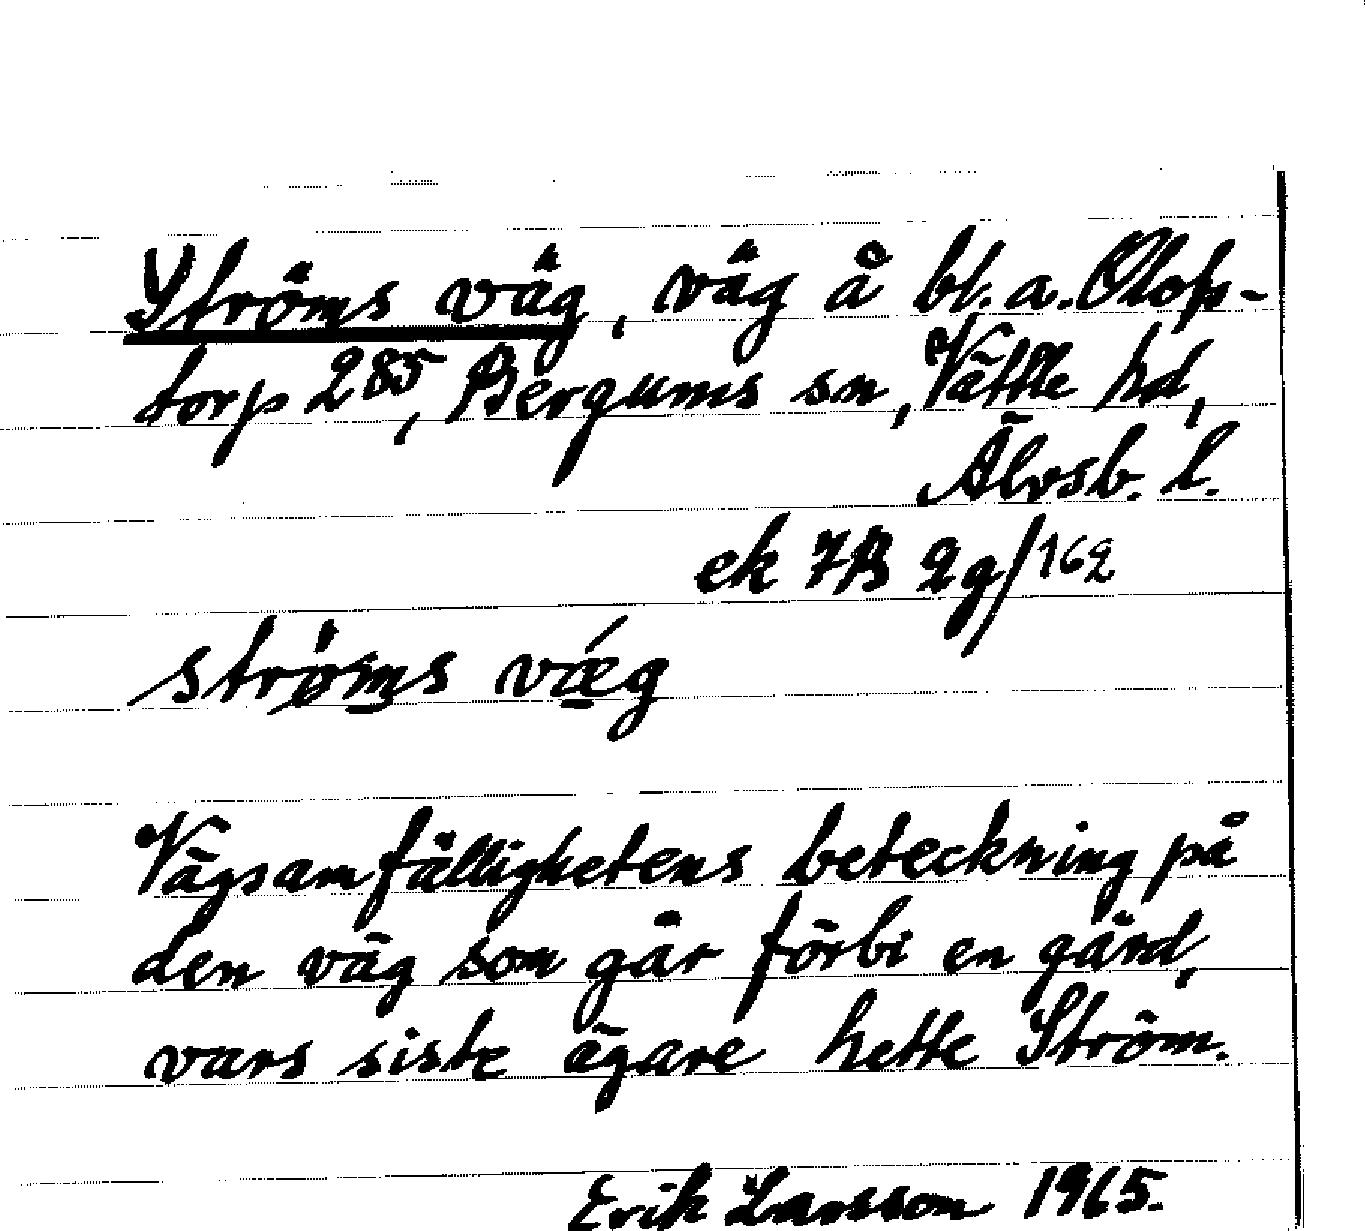 Ströms väg, väg å bl. a. Olofs-
torp 2⁸⁵, Bergums sn, Vättle hd,
Älvsb. l.
ek 7B 2g/162
strø̀m̲s vǽ̲g
Vägsamfällighetens beteckning på
den väg som går förbi en gård,
vars siste ägare hette Ström.
Erik Larsson 1965.